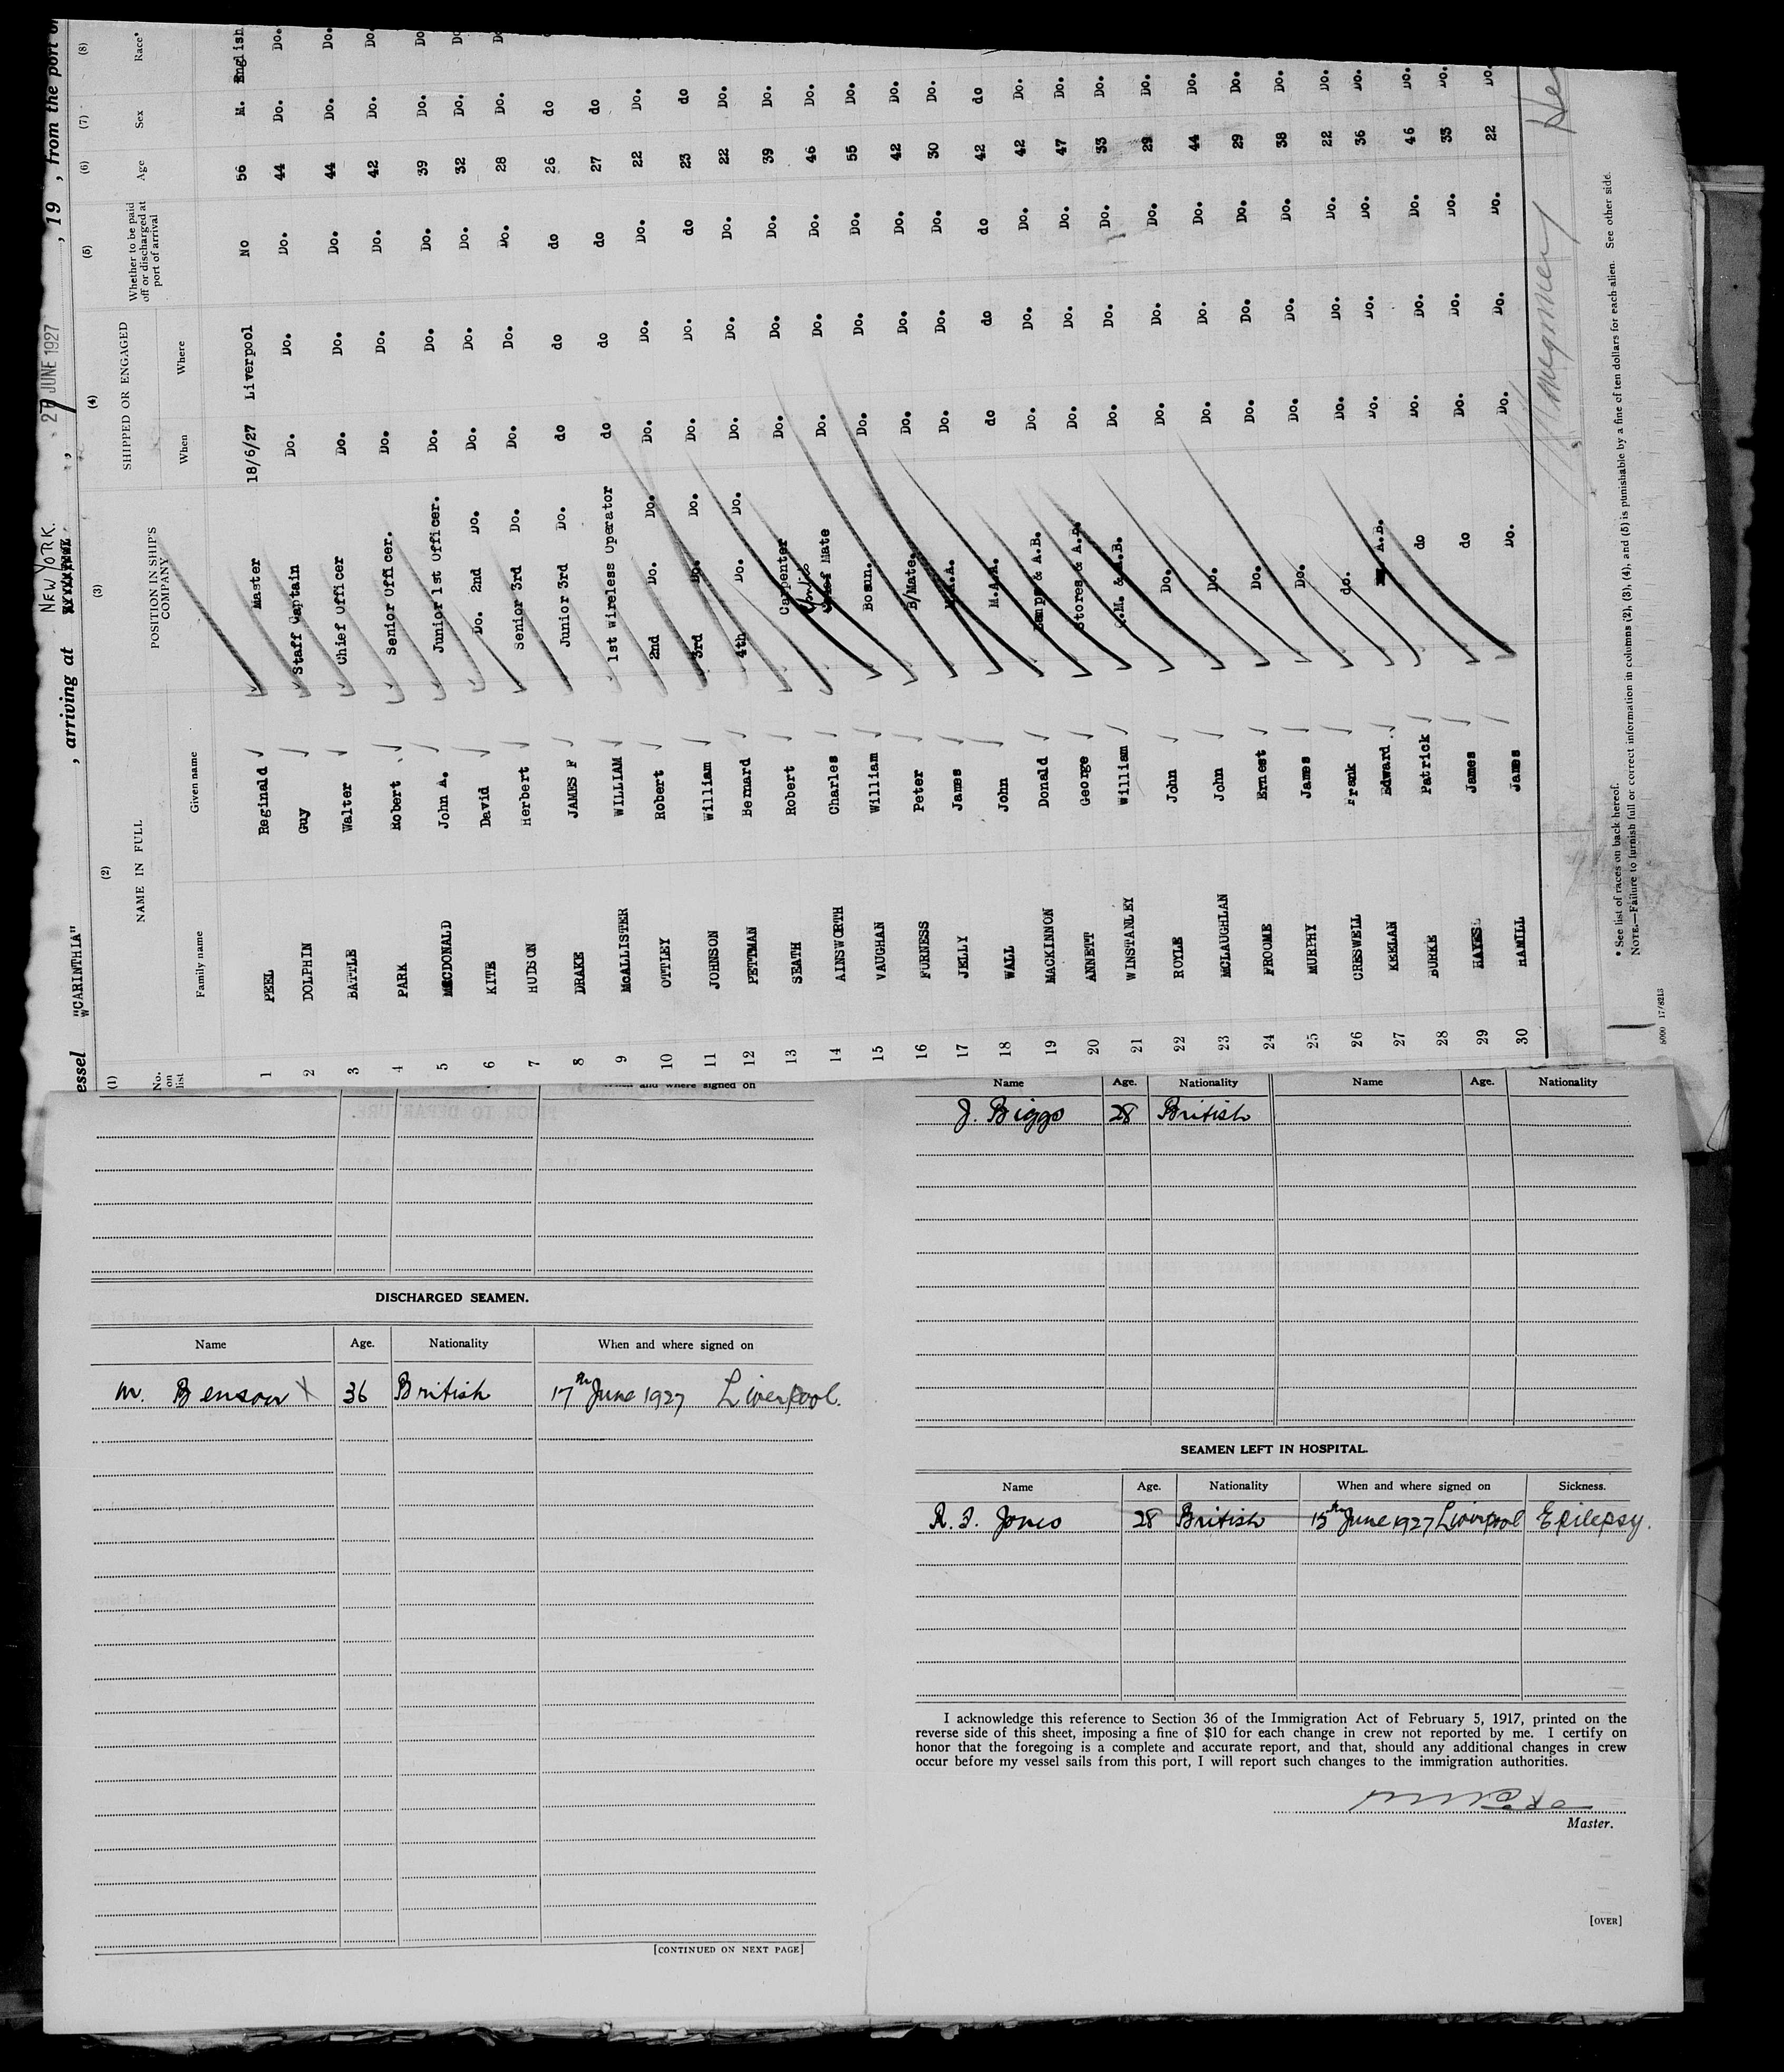 essel "CARINTHIA" , arriving at NEW YORK. , 27 JUNE 1927 , 19 , from the port of
(1) (2) (3) (4) (5) (6) (7) (8)
No. on list NAME IN FULL POSITION IN SHIP'S COMPANY SHIPPED OR ENGAGED Whether to be paid off or discharged at port of arrival Age Sex Race*
Family name Given name When Where
1 PEEL Reginald Master 18/6/27 Liverpool No 56 M. English
2 DOLPHIN Guy Staff Captain Do. Do. Do. 44 Do. Do.
3 BATTLE Walter Chief Officer Do. Do. Do. 44 Do. Do.
4 PARK Robert Senior Officer. Do. Do. Do. 42 Do. Do.
5 MCDONALD John A. Junior 1st Officer. Do. Do. Do. 39 Do. Do
6 KITE David Do. 2nd Do. Do. Do. Do. 32 Do. Do
7 HUDSON Herbert Senior 3rd Do. Do. Do. Do. 28 Do. Do
8 DRAKE JAMES F Junior 3rd Do. do do do 26 do
9 McALLISTER WILLIAM 1st Wireless Operator do do do 27 do
10 OTTLEY Robert 2nd Do. Do. Do. Do. Do. 22 Do.
11 JOHNSON William 3rd Do. Do. Do. Do. do 23 do
12 PETTMAN Bernard 4th Do. Do. Do. Do. Do. 22 Do.
13 SEATH Robert Carpenter Do. Do. Do. 39 Do.
14 AINSWORTH Charles Mate Do. Do. Do. 46 Do.
15 VAUGHAN William Bosun. Do. Do. Do. 55 Do.
16 FURNESS Peter B/Mate. Do. Do. Do. 42 Do.
17 JELLY James M.A.A. Do. Do. Do. 30 Do.
18 WALL John M.A.A. do do do 42 do
19 MACKINNON Donald Lamps & A.B. Do. Do. Do. 42 Do.
20 ANNETT George Stores & A.B. Do. Do. Do. 47 Do.
21 WINSTANLEY William & A.B. Do. Do. Do. 33 Do.
22 ROYLE John Do. Do. Do. Do. 29 Do.
23 MCLAUGHLAN John Do. Do. Do. Do. 44 Do.
24 FROOME Ernest Do. Do. Do. Do. 29 Do.
25 MURPHY James Do. Do. Do. Do. 38 Do.
26 CRESWELL Frank do. Do. Do. Do. 22 Do.
27 KEELAN Edward A.B. Do. Do. Do. 36 Do.
28 BURKE Patrick do Do. Do. Do. 46 Do.
29 HAYES James do Do. Do. Do. 33 Do.
30 HAMILL James Do. Do. Do. Do. 22 Do.
* See list of races on back hereof.
NOTE—Failure to furnish full or correct information in columns (2), (3), (4), and (5) is punishable by a fine of ten dollars for each alien. See other side.
5000 17/8213
and where signed on
DISCHARGED SEAMEN.
Name Age. Nationality When and where signed on
M. Benson X 36 British 17th June 1927 Liverpool.
[CONTINUED ON NEXT PAGE]
Name Age. Nationality Name Age. Nationality
J. Biggs 28 British
SEAMEN LEFT IN HOSPITAL.
Name Age. Nationality When and where signed on Sickness.
R. J. Jones 28 British 15th June 1927 Liverpool Epilepsy.
I acknowledge this reference to Section 36 of the Immigration Act of February 5, 1917, printed on the
reverse side of this sheet, imposing a fine of $10 for each change in crew not reported by me. I certify on
honor that the foregoing is a complete and accurate report, and that, should any additional changes in crew
occur before my vessel sails from this port, I will report such changes to the immigration authorities.
Master.
[OVER]